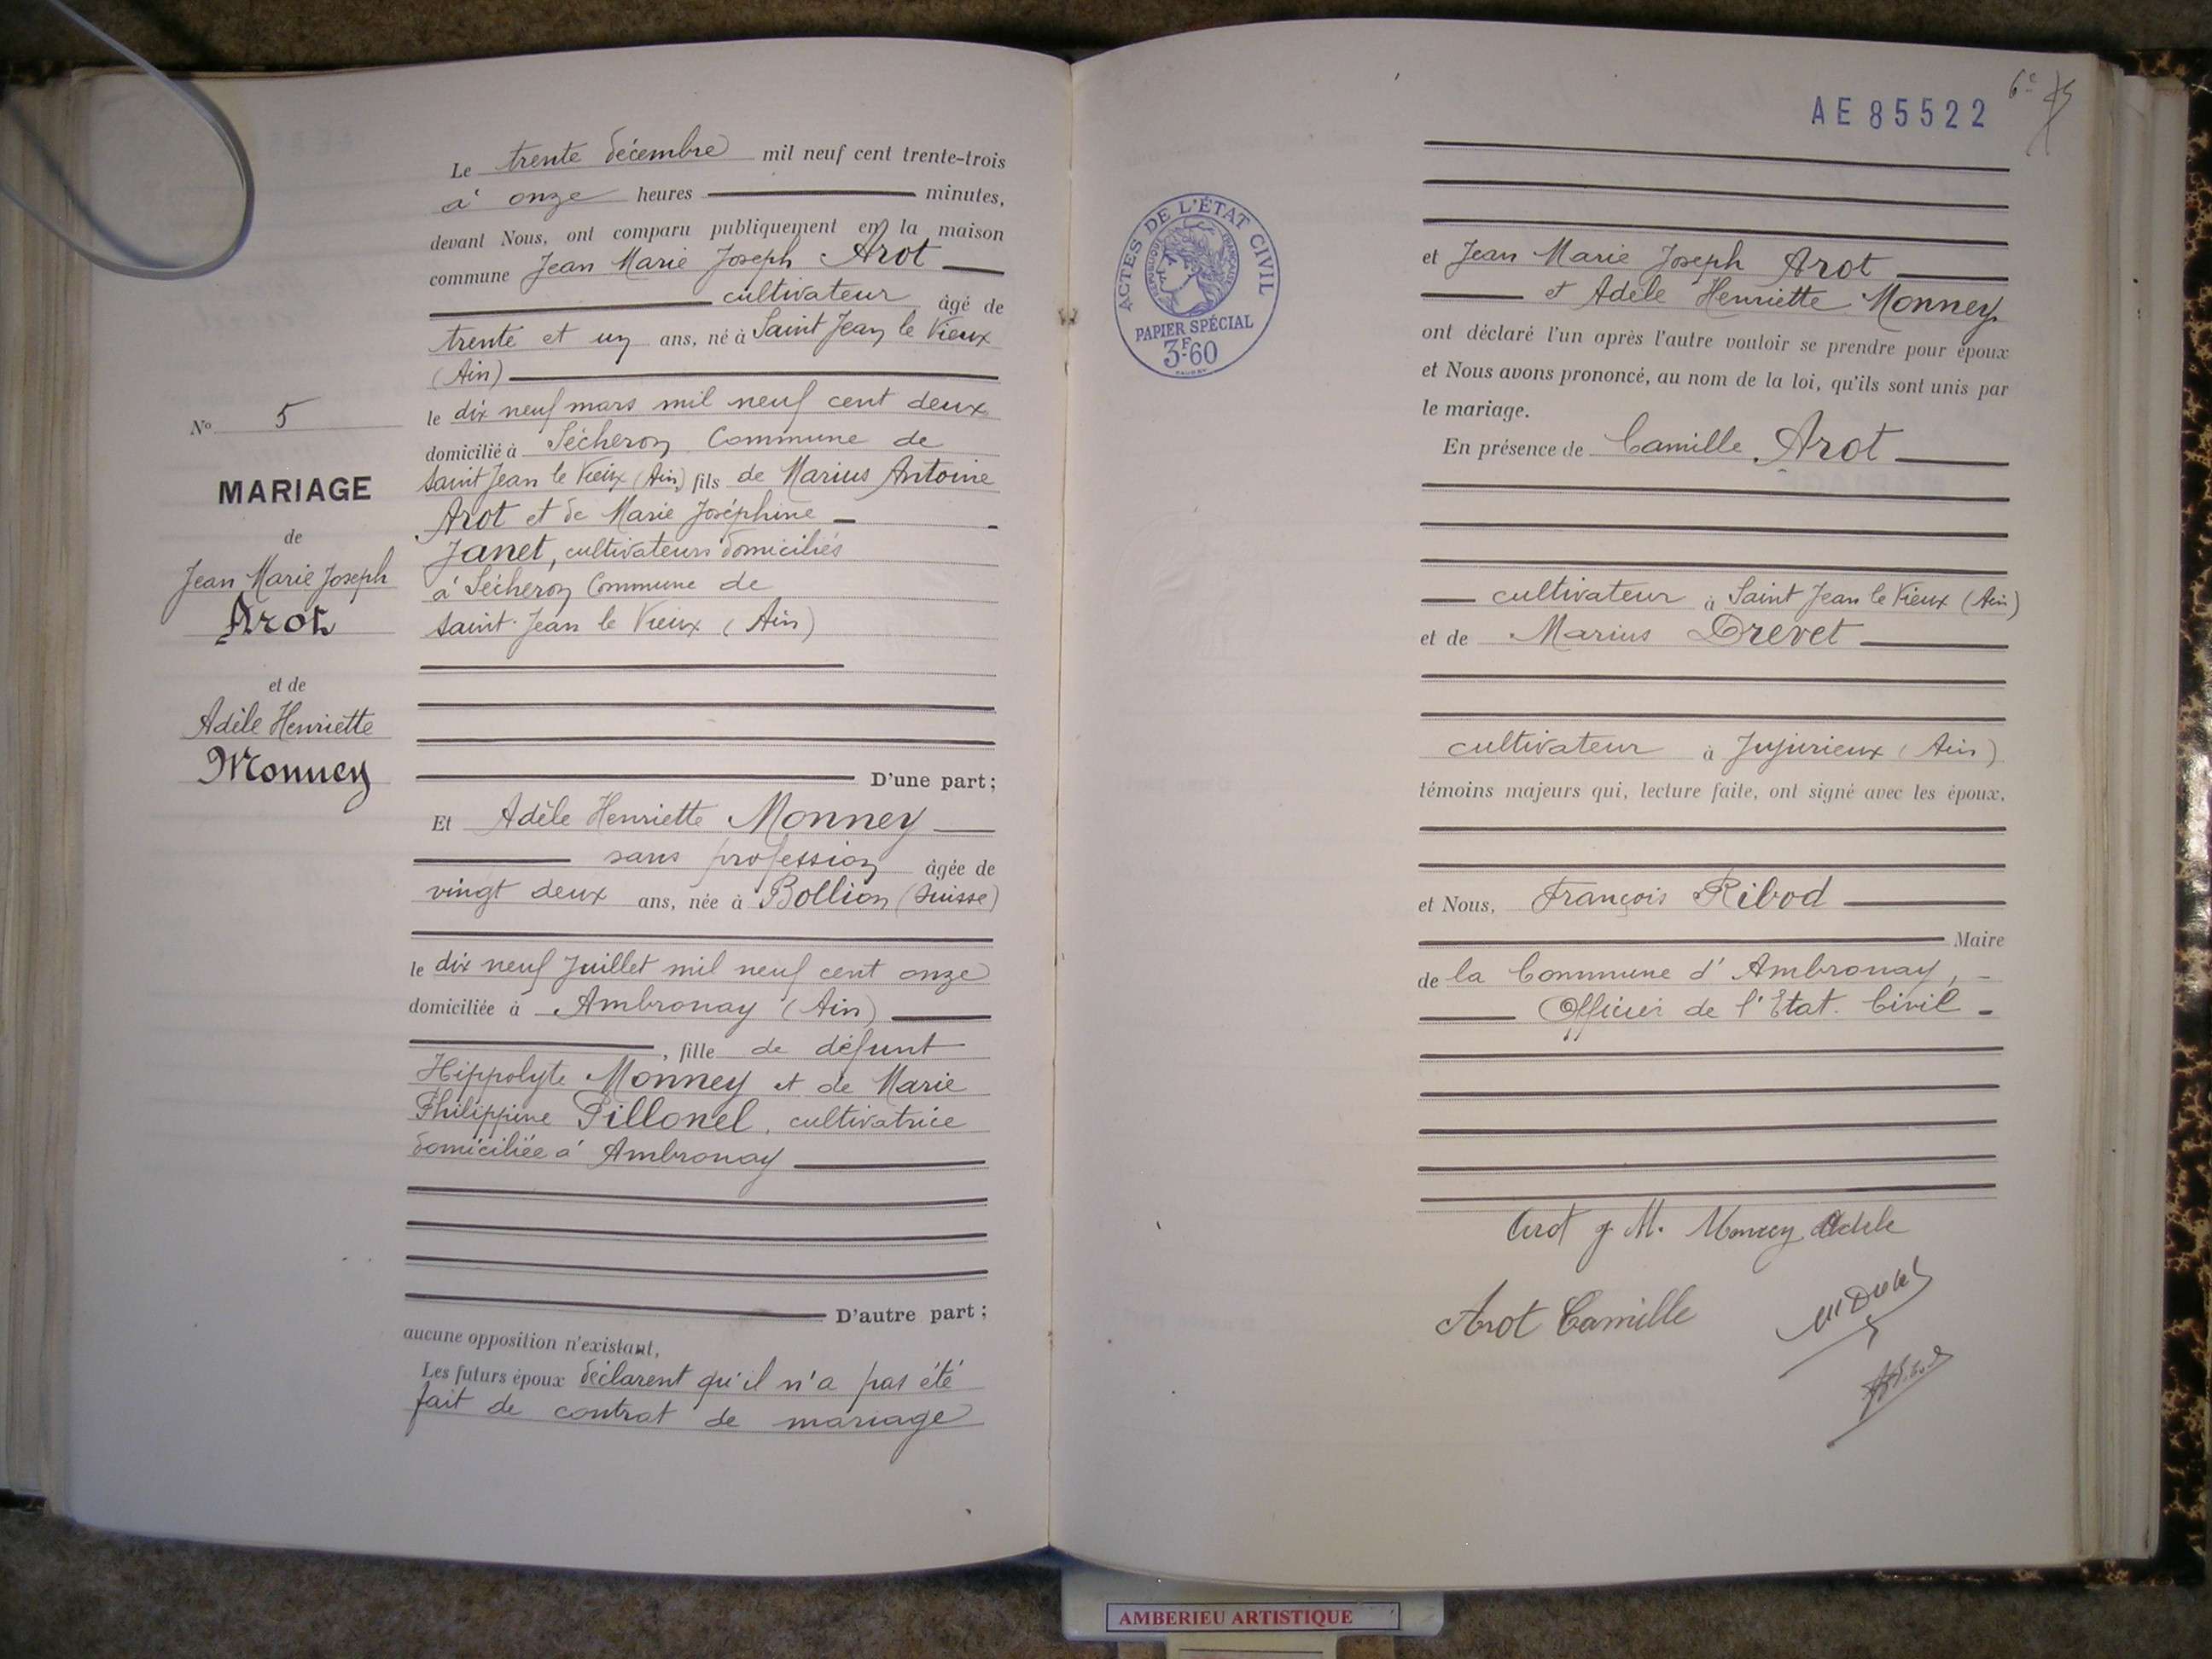 Le trente décembre mil neuf cent trente-trois
à onze heures minutes,
devant Nous, ont comparu publiquement en la maison
commune Jean Marie Joseph Arot
cultivateur âgé de
trente et un ans, né à Saint Jean le Vieux
(Ain)
le dix neuf mars mil neuf cent deux
domicilié à Sécheron Commune de
Saint Jean le Vieux (Ain) fils de Marius Antoine
Arot et de Marie Joséphine
Janet, cultivateurs domiciliés
à Sécheron Commune de
Saint-Jean le Vieux (Ain)
D'une part;
Et Adèle Henriette Monney
sans profession âgée de
vingt deux ans, née à Bollion (Suisse)
le dix neuf Juillet mil neuf cent onze
domiciliée à Ambronay (Ain)
, fille de défunt
Hippolyte Monney et de Marie
Philippine Pillonel, cultivatrice
domiciliée à Ambronay
D'autre part;
aucune opposition n'existant,
Les futurs époux déclarent qu'il n'a pas été
fait de contrat de mariage
No 5
MARIAGE
de
Jean Marie Joseph
Arot
et de
Adèle Henriette
Monney
AE 85522
ACTES DE L'ÉTAT CIVIL
RÉPUBLIQUE FRANÇAISE
PAPIER SPÉCIAL
3F.60
et Jean Marie Joseph Arot
et Adèle Henriette Monney
ont déclaré l'un après l'autre vouloir se prendre pour époux
et Nous avons prononcé, au nom de la loi, qu'ils sont unis par
le mariage.
En présence de Camille Arot
cultivateur à Saint Jean le Vieux (Ain)
et de Marius Drevet
cultivateur à Jujurieux (Ain)
témoins majeurs qui, lecture faite, ont signé avec les époux,
et Nous, François Ribod
Maire
de la Commune d'Ambronay,
Officier de l'Etat-Civil
Arot J. M. Monney Adèle
Arot Camille
AMBERIEU ARTISTIQUE